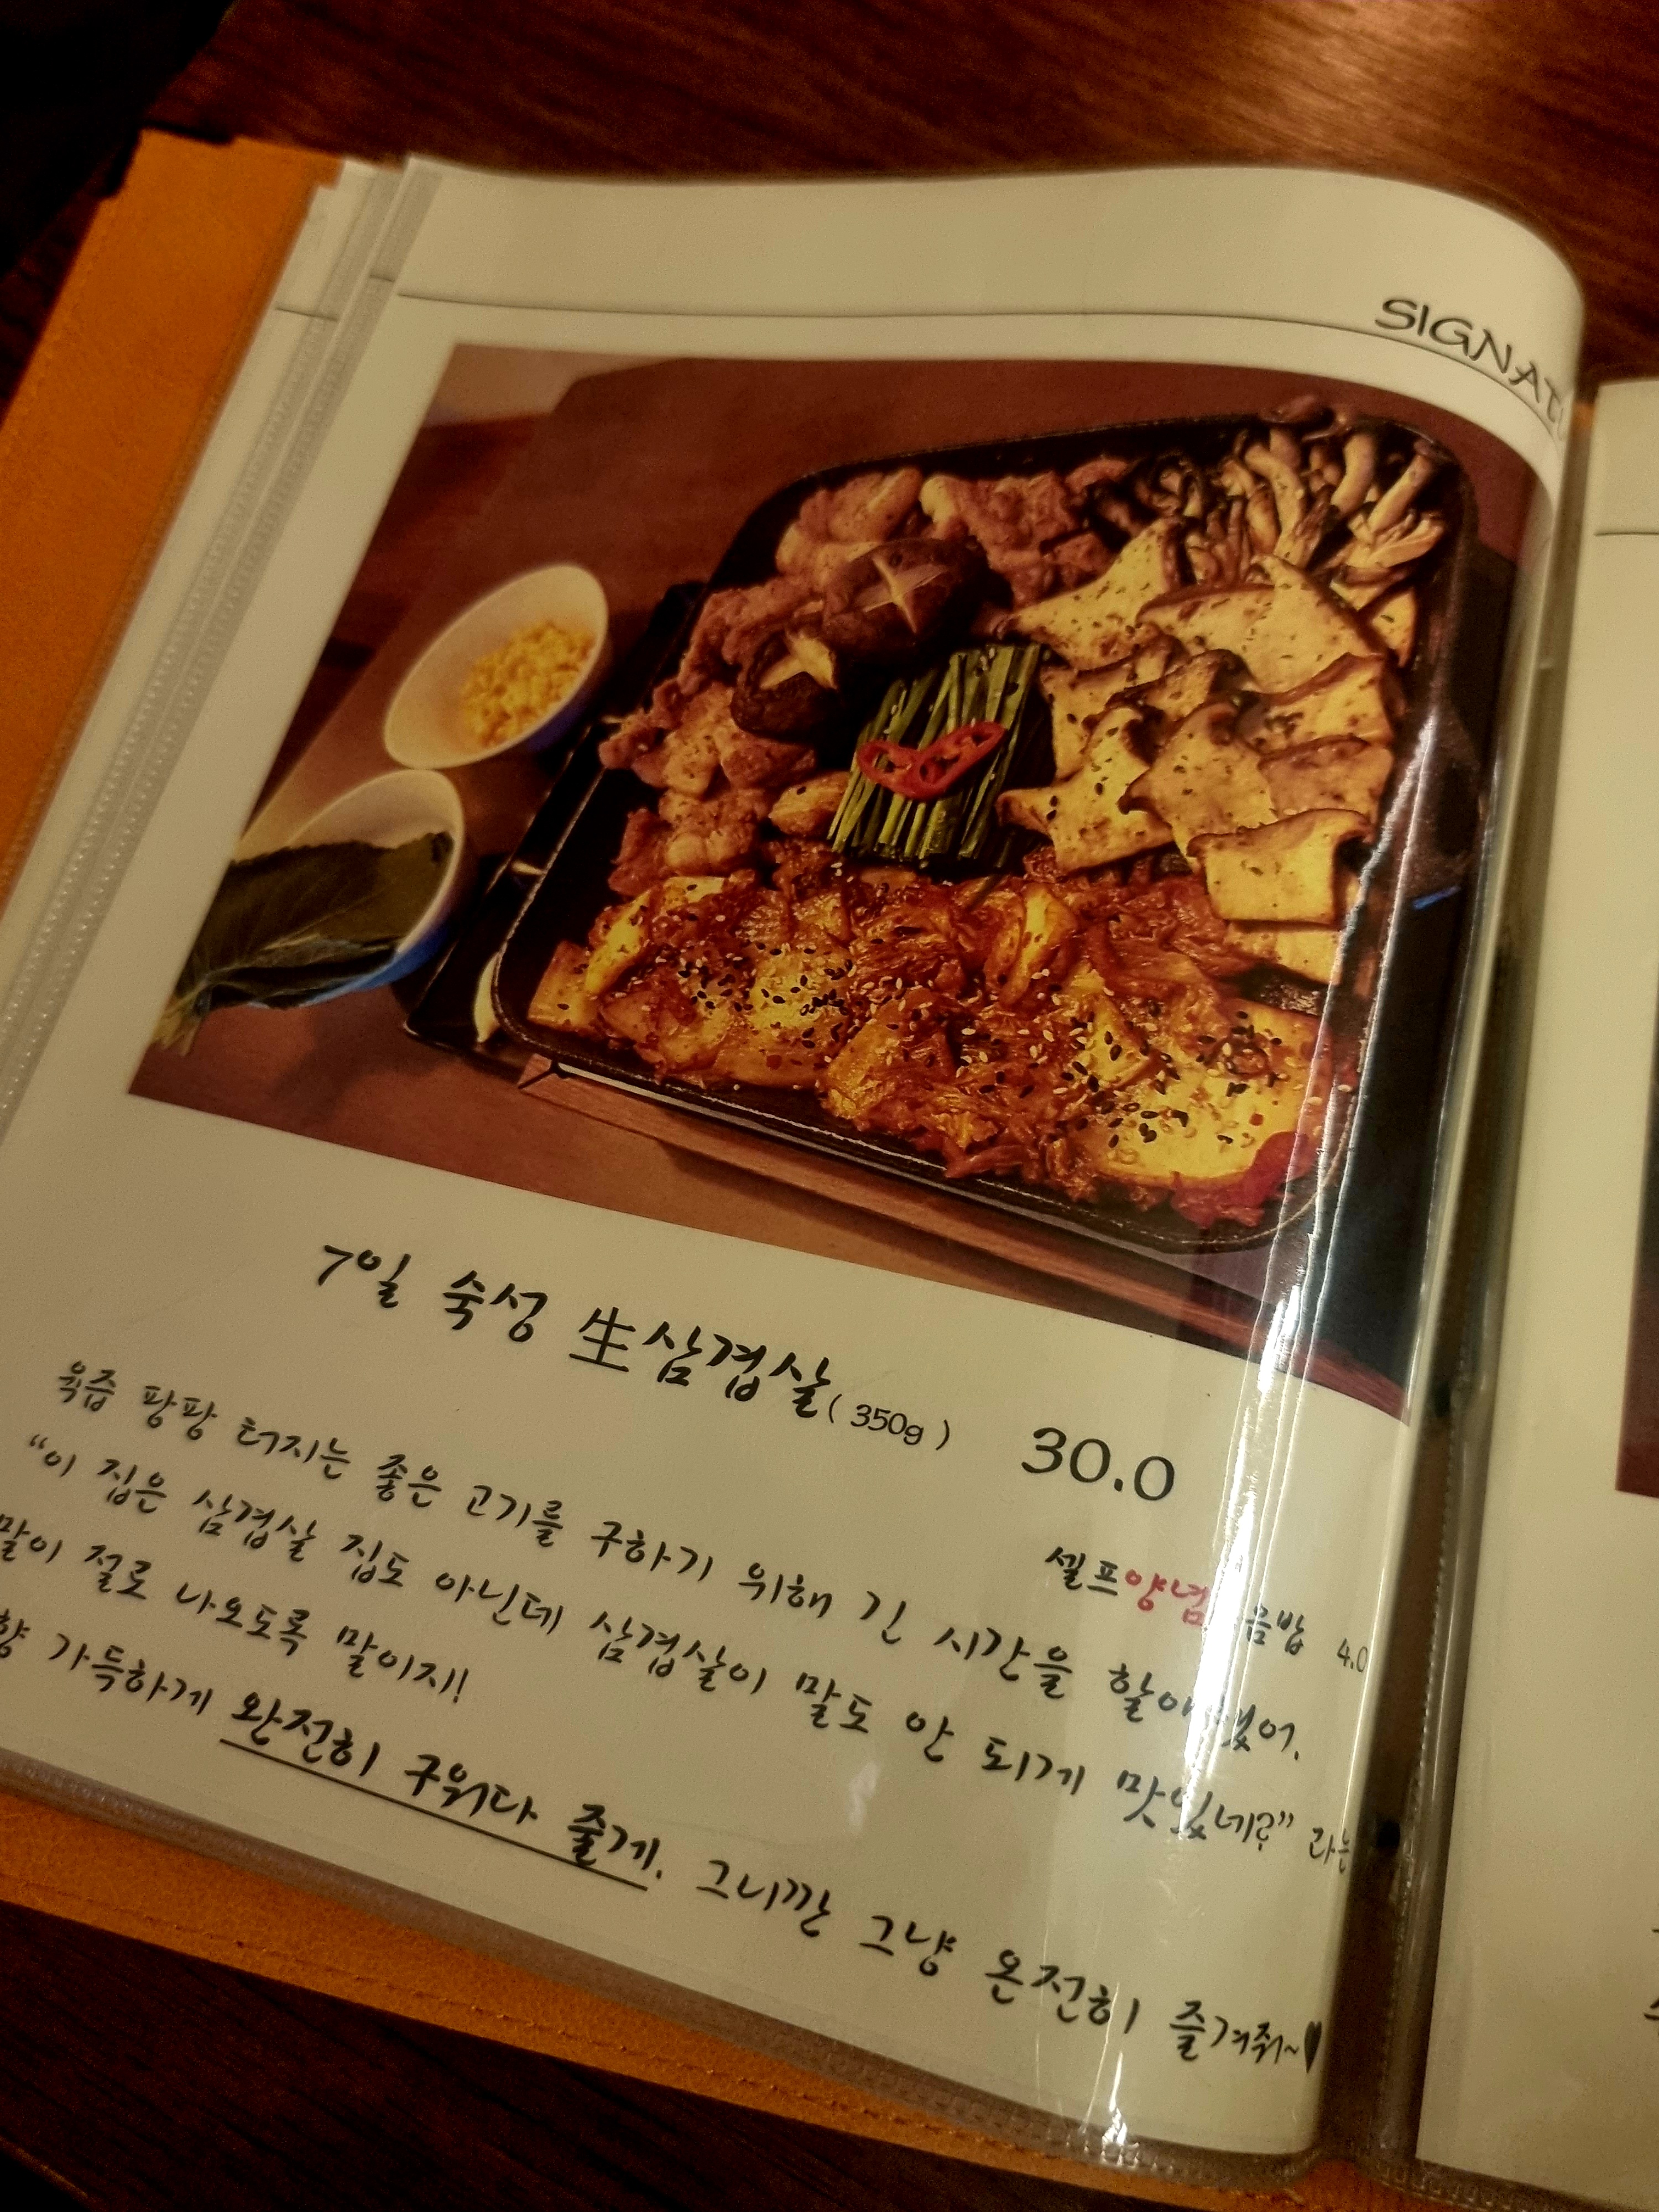 7일 숙성 生삼겹살( 350g ) 30.0
셀프양념 4.0
육즙 팡팡 터지는 좋은 고기를 구하기 위해 긴 시간을
"이 집은 삼겹살 집도 아닌데 삼겹살이 말도 안 되게 맛있네?" 라는
말이 절로 나오도록 말이지!
향 가득하게 완전히 구워다 줄게. 그니깐 그냥 온전히 즐겨줘~♥